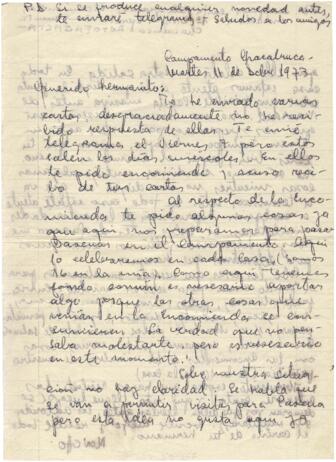 P.D. Si se produce cualquier novedad antes,
te enviaré telegrama. Saludos a los amigos
Campamento Chacabuco.
Martes 11 de Dcbre 1973
Querido hermanito:
Te he enviado varias
cartas, desgraciadamente no he reci
bido respuesta de ellas. Te envié
telegrama el Viernes, pero éstos
salen los días miércoles. En ellos
te pido encomienda y acuso reci
bo de tus cartas.
Al respecto de la enco-
mienda te pido algunas cosas, ya
que aquí nos preparamos para pasar
Pascuas en el Campamento. Aquí
lo celebraremos en cada casa, (somos
16 en la mía). Como aquí tenemos
fondo común es necesario aportar
algo porque las otras cosas que
venían en la Encomienda se con-
sumieron. La verdad que no pen
saba molestarte, pero es necesario
en este momento.
Sobre nuestra situa
ción no hay claridad. Se habla que
se van a permitir visitas para Pascua
pero esta idea no gusta aquí, ya